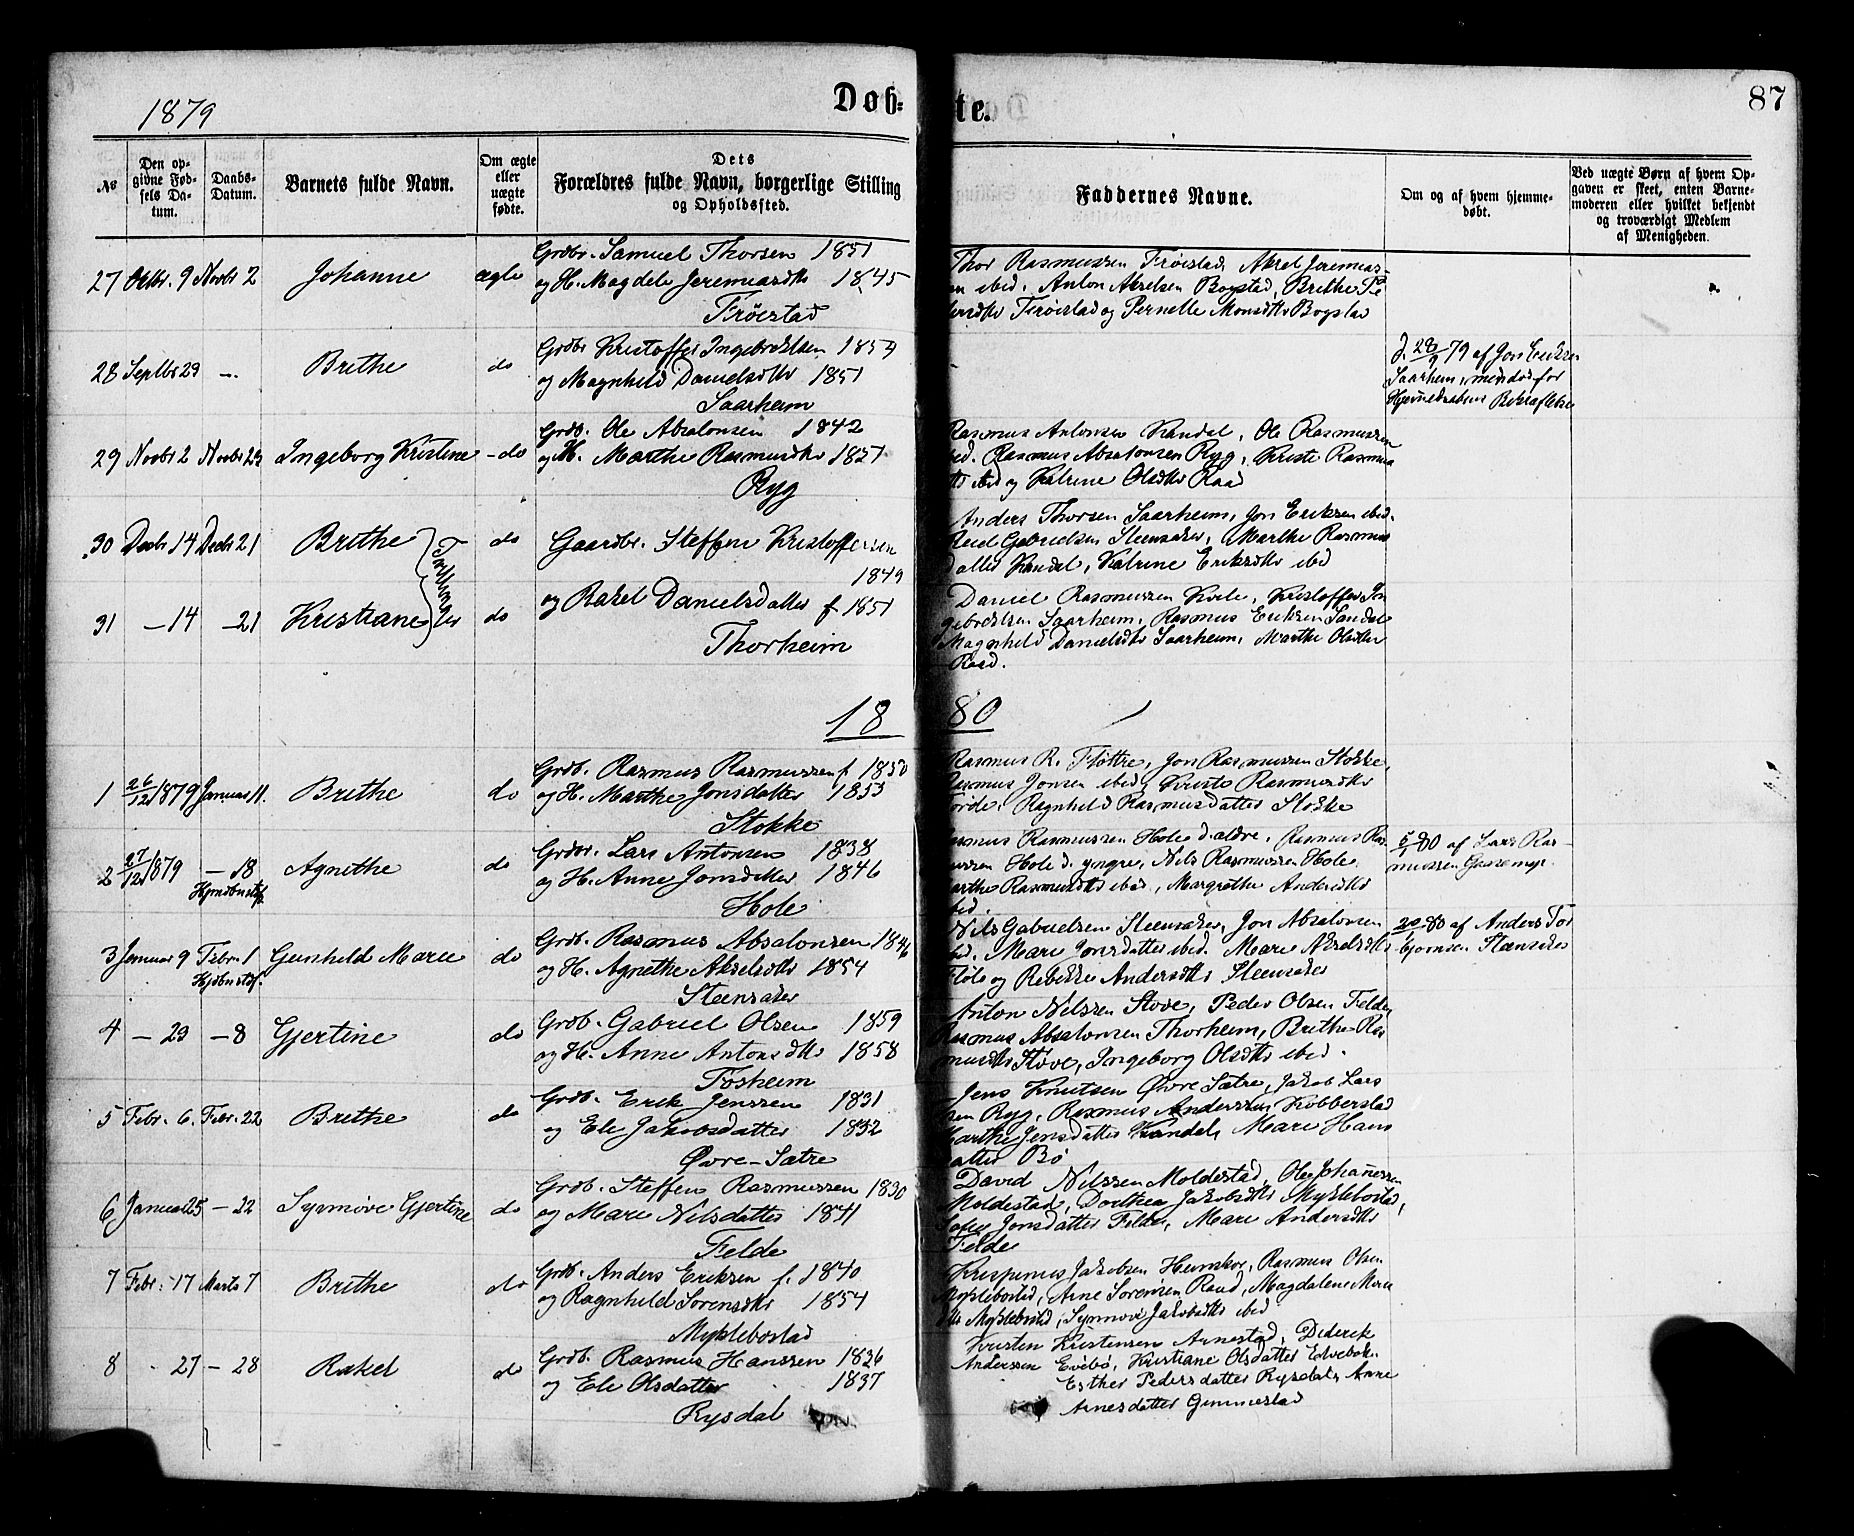 1879
Døb-
te.
87
No
Den opgivne Fødsels Datum.
Daabs-Datum.
Barnets fulde Navn.
Om ægte eller uægte fødte.
Dets Forældres fulde Navn, borgerlige Stilling og Opholdssted.
Faddernes Navne.
Om og af hvem hjemmedøbt.
Ved uægte Børn af hvem Opgaven er skeet, enten Barnemoderen eller hvilket bekjendt og troværdigt Medlem af Menigheden.
27 Octbr. 9 Novbr 2 Johanne ægte
Grdbr. Samuel Thorsen 1851
og H. Magdele Jeremiasdtr 1845
Frøistad
Thor Rasmussen Frøistad, Aksel Jeremias-
en ibid. Anton Akselsen Bogstad, Brithe Pe
dersdtr Frøistad og Pernelle Monsdtr Bogstad
28 Septbr 29 -. Brithe do
Grdbr Kristoffer Ingebretsen 1854
og Magnhild Danielsdtr 1851
Saarheim
d. 28/9 79 af Jon Eriksen
Saarheim, men død før
Hjemmedaabens Bekræftelse
29 Novbr 2 Novbr 23 Ingeborg Kristine - do
Grdb. Ole Absalonsen 1842
og H. Marthe Rasmusdtr 1851
Ryg
Rasmus Antonsen Kandal, Ole Rasmussen
ibid. Rasmus Absalonsen Ryg, Kriste Rasmus
dtr ibid og Katrine Olsdtr Raad
30 Decbr 14 Decbr 21 Brithe do
Tvillinger
Gaardbr. Steffen Kristoffersen
1849
Anders Thorsen Saarheim, Jon Eriksen ibid.
Reid Gabrielsen Steensaker, Marthe Rasmus
datter Kandal, Katrine Eriksdtr ibid
31 - 14 - 21 Kristiane do
og Rakel Danielsdatter f. 1851
Thorheim
Daniel Rasmussen Kvile, Kristoffer In
gebretsen Saarheim, Rasmus Eriksen Sandal
Magnhild Danielsdtr Saarheim, Marthe Olsdtr
Raad.
18 80
1 26/12 1879 Januar 11. Brithe do
Grdb. Rasmus Rasmussen f. 1850
og H. Marthe Jonsdatter 1853
Stokke
Rasmus R. Fløttre, Jon Rasmussen Stokke,
Rasmus Jonsen ibid, Kriste Rasmusdtr
Førde, Ragnhild Rasmusdatter Stokke
2 27/12 1879 - 18 Agnethe do
Hjmdbstf.
Grdbr. Lars Antonsen 1838
og H. Anne Jonsdatter 1846
Hole
Rasmus Rasmussen Hole d. ældre, Rasmus Ras
mussen Hole d. yngre, Nils Rasmussen Hole,
Marthe Rasmusdtr ibid, Margrethe Andersdtr
ibid.
5/1 80 af Lars Ras-
mussen Gaasemyr.
3 Januar 9 Febr. 1 Gunhild Marie do
Hjdbstf.
Grdb. Rasmus Absalonsen 1846
og H. Agnethe Akselsdtr 1854
Steensaker
Nils Gabrielsen Steensaker, Jon Absalonsen
ibid. Mari Jonsdatter ibid. Marie Akselsdtr
Fløle og Rebekke Andersdtr Steensaker
20/1 80 af Anders Tor
bjørnsen Steensaker
4 - 29 - 8 Gjertine do
Grdb. Gabriel Olsen 1859
og H. Anne Antonsdtr 1858
Tosheim
Anton Nilssen Støve, Peder Olsen Felde,
Rasmus Absalonsen Thorheim, Brithe Ras
musdtr Støve, Ingeborg Olsdtr ibid.
5 Febr. 6. Febr. 22 Brithe do
Grdb. Erik Jenssen 1831
og Eli Jakobsdatter 1832
Øvre-Sætre
Jens Knutsen Øvre Sætre, Jakob Lars
sen Ryg, Rasmus Anderssen Kobberstad
Marthe Jensdatter Kandal, Mari Hans
datter Bø
6 Januar 25 - 22 Synnøve Gjertine do
Grdb. Steffen Rasmussen 1830
og Mari Nilsdatter 1841
Felde
David Nilssen Moldestad, Ole Johannessen
Moldestad, Dorthea Jakobsdtr Myklebostad,
Sofie Jonsdatter Felde, Mari Andersdtr
Felde
7 Febr. 17 Marts 7 Brithe do
Grdb. Anders Eriksen f. 1840
og Ragnhild Sørensdtr 1854
Myklebostad
Krispinus Jakobsen Hennskor, Rasmus Olsen
Myklebostad, Arne Sørensen Raad, Magdalene Mons
dtr Myklebostad, Synnøve Jakobsdtr ibid
8 - 27 - 28 Rakel do
Grdb. Rasmus Hanssen 1836
og Eli Olsdatter 1837
Rysdal
Kristen Kristensen Arnestad, Diderik
Anderssen Evebø, Kristiane Olsdatter Edvebak.
Esther Pedersdatter Rysdal, Anne
Arnesdatter Gimmestad